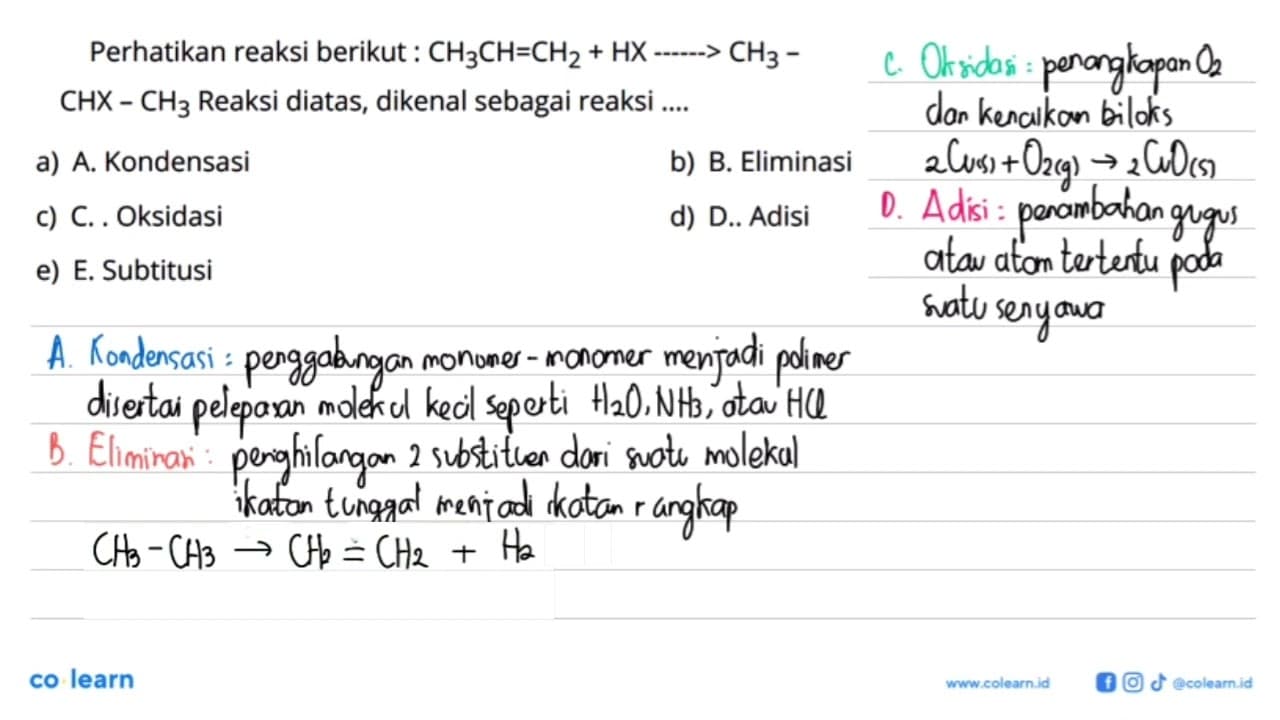 Perhatikan reaksi berikut : CH₃CH=CH₂ + HX ------> CH₃ –
CHX – CH₃ Reaksi diatas, dikenal sebagai reaksi ....
a) A. Kondensasi
b) B. Eliminasi
c) C. . Oksidasi
d) D.. Adisi
e) E. Subtitusi
C. Oksidasi : penangkapan O₂
dan kenaikan biloks
2Cu(s) + O₂(g) → 2CuO(s)
D. Adisi : penambahan gugus
atau atom tertentu pada
suatu senyawa
A. Kondensasi : penggabungan monomer - monomer menjadi polimer
disertai pelepasan molekul kecil seperti H₂O, NH₃, atau HCl
B. Eliminasi : penghilangan 2 substituen dari suatu molekul
ikatan tunggal menjadi ikatan rangkap
CH₃ – CH₃ → CH₂ = CH₂ + H₂
co learn
www.colearn.id
@colearn.id